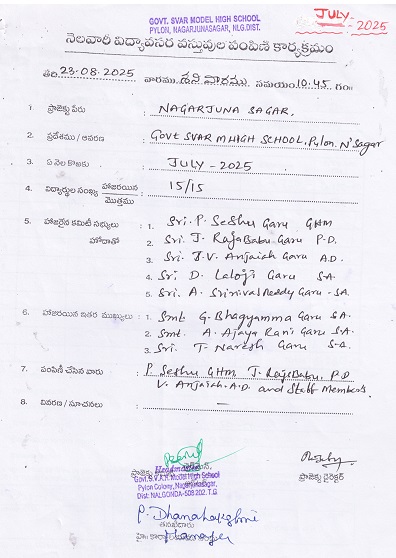 JULY-2025
GOVT. SVAR MODEL HIGH SCHOOL
PYLON, NAGARJUNASAGAR, NLG.DIST.
నెలవారీ విద్యావసర వస్తువుల పంపిణీ కార్యక్రమం
తేది 23.08.2025 వారము శనివారము సమయం 10.45 గం॥
1 ప్రాజెక్టు పేరు : NAGARJUNA SAGAR.
2. ప్రదేశము / ఆవరణ : GOVT SVAR M HIGH SCHOOL, Pylon. N'Sagar
3. ఏ నెల కొఱకు : JULY - 2025
4. విద్యార్థుల సంఖ్య హాజరయిన / మొత్తము : 15/15
5. హాజరైన కమిటీ సభ్యులు : 1. Sri. P. Seshu Garu GHM
హోదాతో 2. Sri. J. RajaBabu Garu P.D.
3. Sri. J.V. Anjaiah Garu A.D.
4. Sri. D. Laloji Garu S.A.
5. Sri. A. Srinivas Reddy Garu - SA.
6. హాజరయిన ఇతర ముఖ్యులు : 1. Smt. G. Bhagyamma Garu SA.
2. Smt. A. Ajaya Rani Garu S.A.
3. Sri. T. Naresh Garu S.A.
7. పంపిణీ చేసిన వారు : P. Seshu GHM, J. RajaBabu, P.D
V. Anjaiah. A.D. and Staff Members.
8. వివరణ / సూచనలు : —
Headmaster
Govt.S.V.A.R. Model High School
Pylon Colony, Nagarjunasagar,
Dist: NALGONDA-508 202. T.G.
ప్రాజెక్టు డైరెక్టర్
తనఖాదారు
Manager